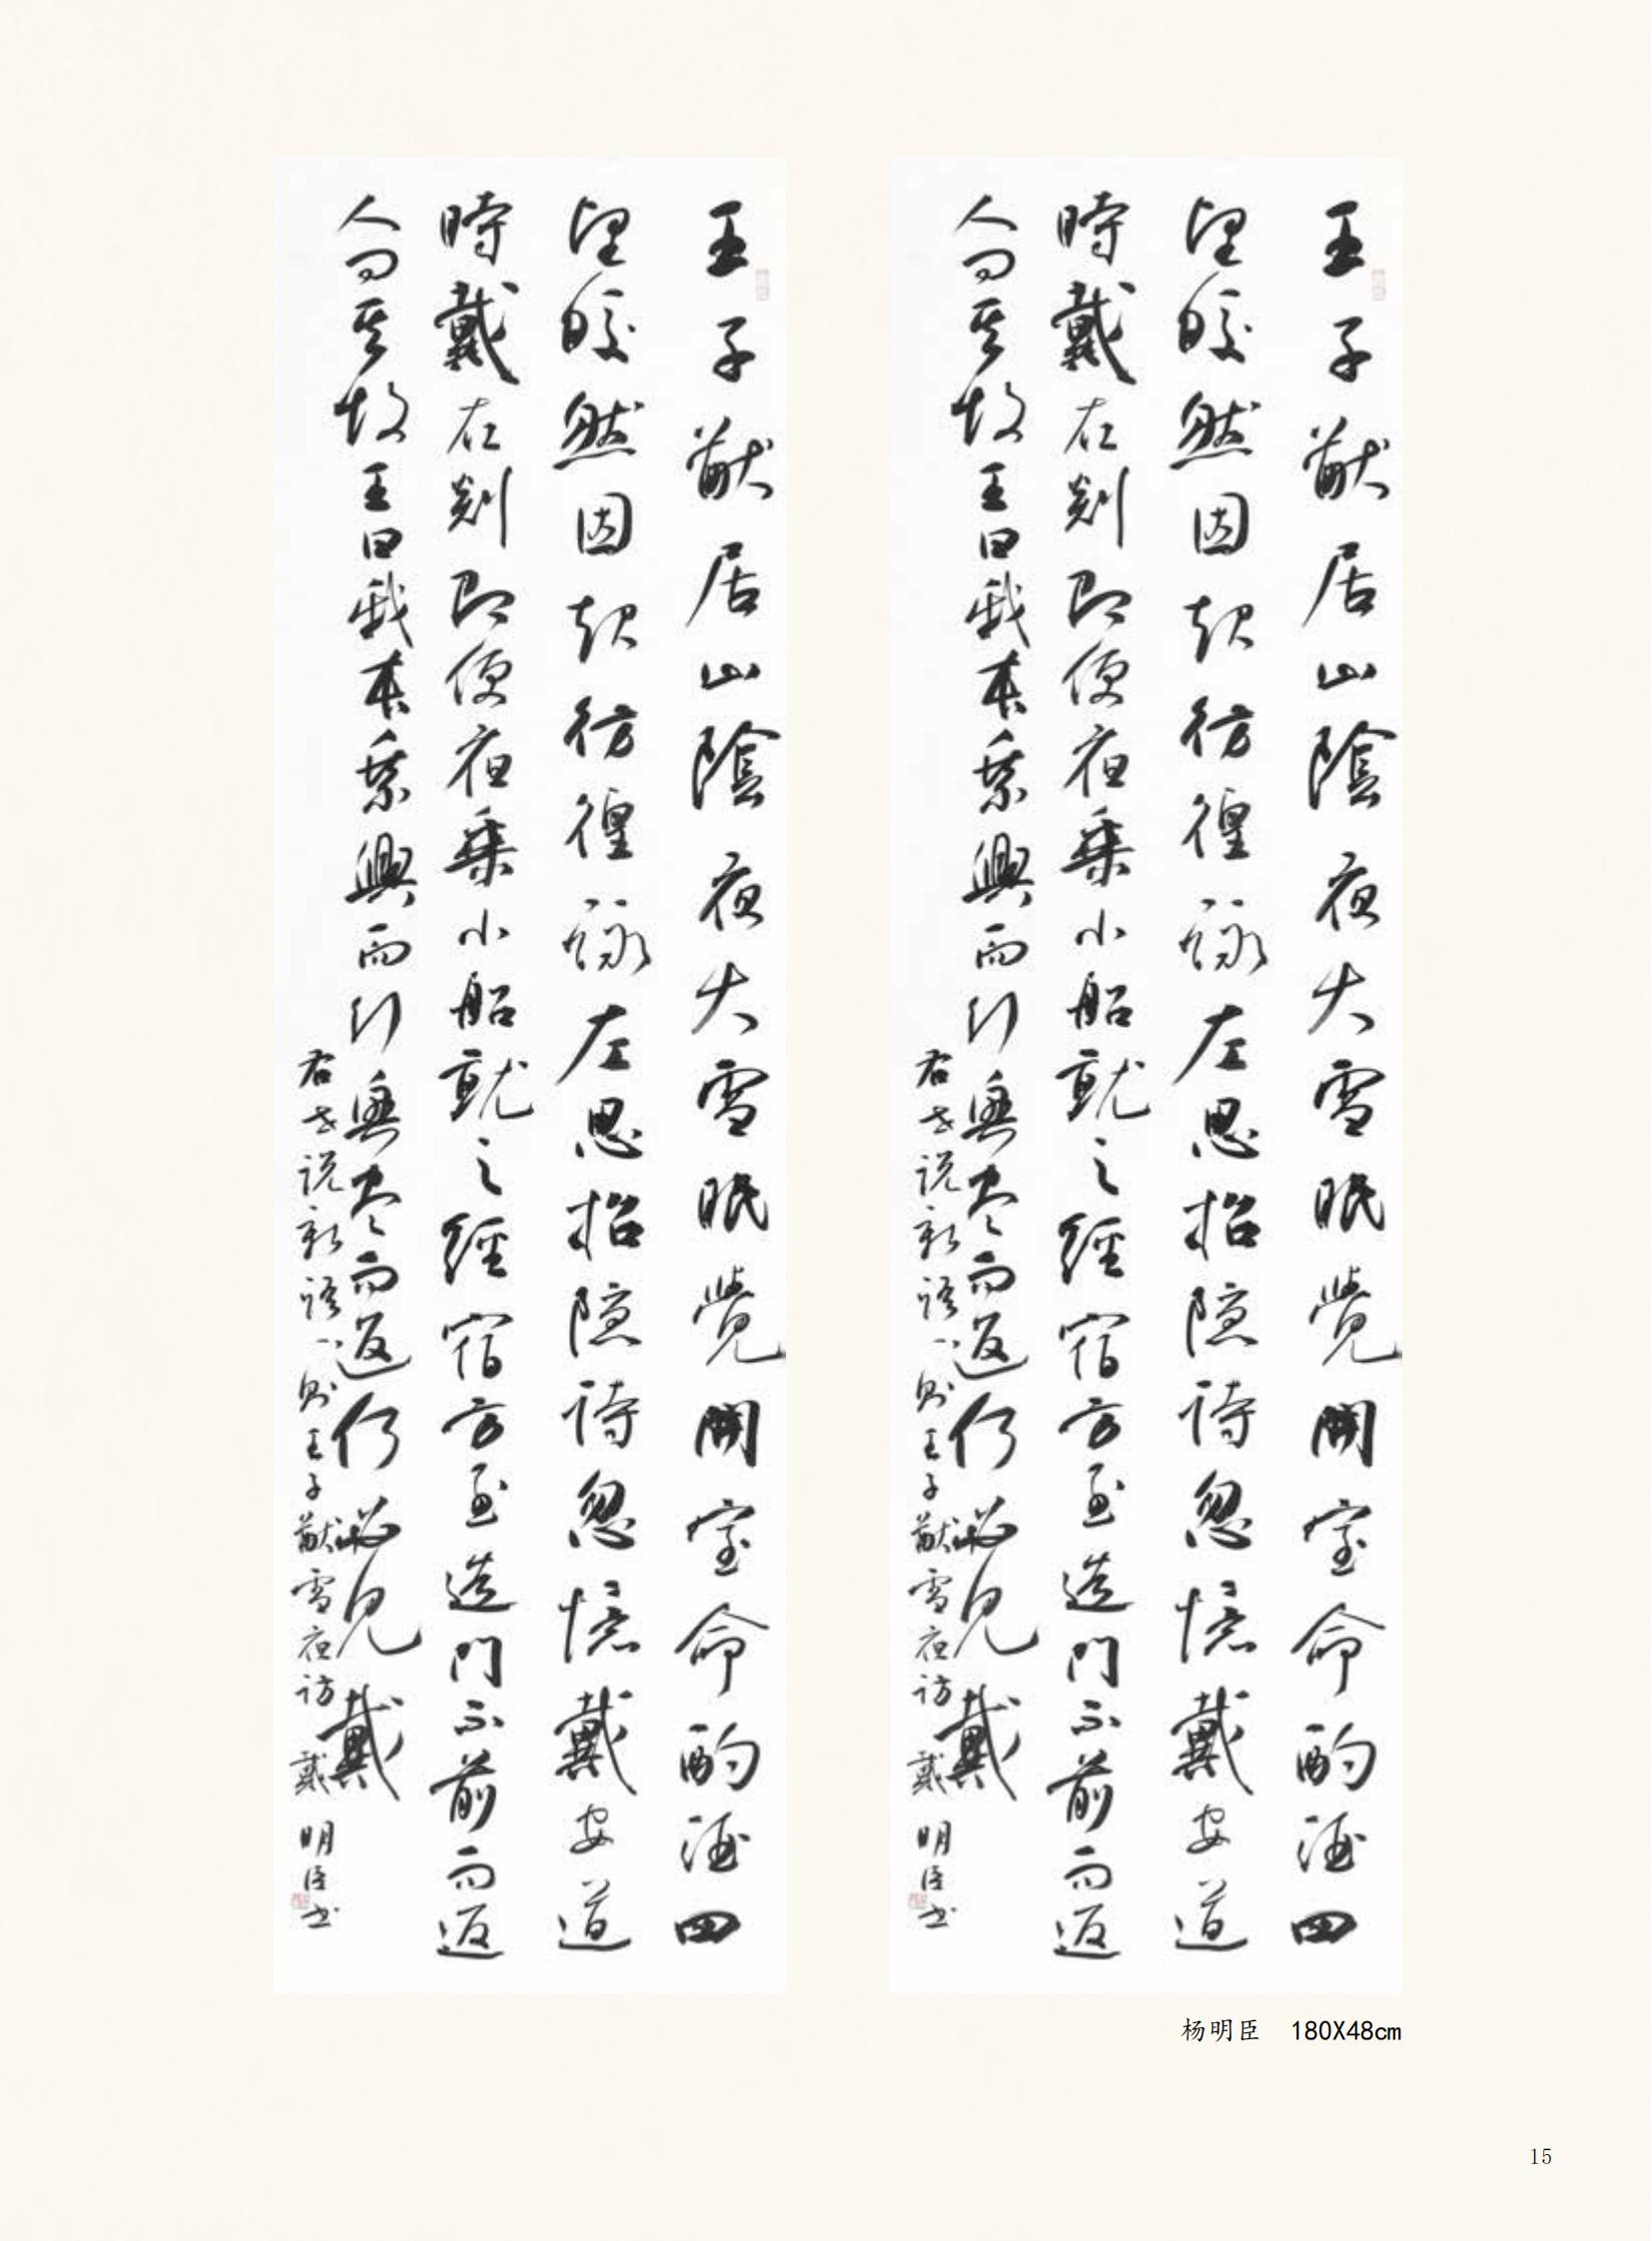 王子猷居山陰夜大雪眠覺開室命酌酒四
望皎然因起彷徨詠左思招隱詩忽憶戴安道
時戴在剡即便夜乘小船就之經宿方至造門不前而返
人問其故王曰我本乘興而行興尽而返何必見戴
右世说新语一则王子猷雪夜访戴 明臣书
王子猷居山陰夜大雪眠覺開室命酌酒四
望皎然因起彷徨詠左思招隱詩忽憶戴安道
時戴在剡即便夜乘小船就之經宿方至造門不前而返
人問其故王曰我本乘興而行興尽而返何必見戴
右世说新语一则王子猷雪夜访戴 明臣书
杨明臣 180X48cm
15